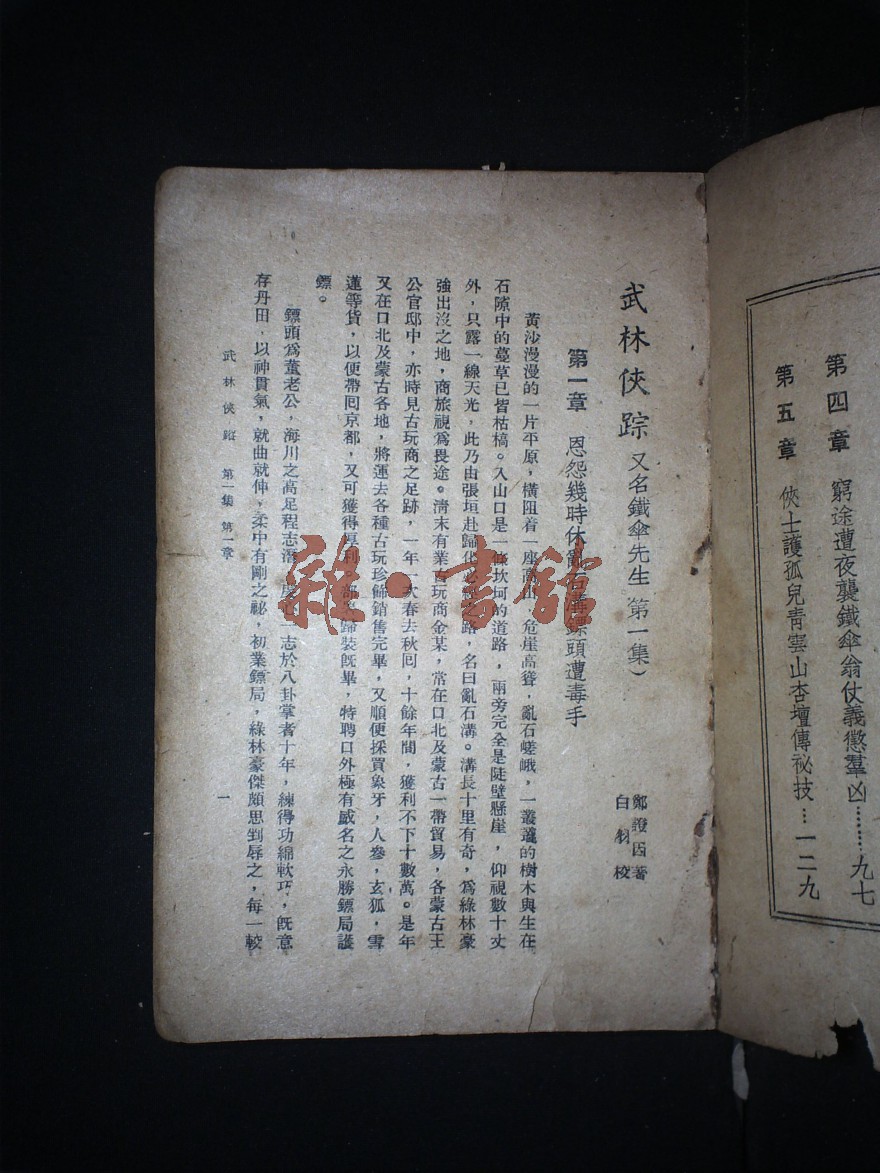 第四章　窮途遭夜襲鐵傘翁仗義懲羣凶………九七
第五章　俠士護孤兒青雲山杏壇傳祕技…一二九
武林俠踪 又名鐵傘先生 第一集）
鄭證因著
白羽校
第一章　恩怨幾時休亂石溝鏢頭遭毒手
黃沙漫漫的一片平原，橫阻着一座高山，危崖高聳，亂石嵯峨，一叢叢的樹木與生在
石隙中的蔓草已皆枯槁。入山口是一條坎坷的道路，兩旁完全是陡壁懸崖，仰視數十丈
外，只露一線天光，此乃由張垣赴歸化必經之路，名曰亂石溝。溝長十里有奇，爲綠林豪
強出沒之地，商旅視爲畏途。淸末有業古玩商金某，常在口北及蒙古一帶貿易，各蒙古王
公官邸中，亦時見古玩商之足跡，一年一次春去秋囘，十餘年間，獲利不下十數萬。是年
又在口北及蒙古各地，將運去各種古玩珍飾銷售完畢，又順便採買象牙，人參，玄狐，雪
蓮等貨，以便帶囘京都，又可獲得厚利。部署歸裝旣畢，特聘口外極有威名之永勝鏢局護
鏢。
鏢頭爲董老公，海川之高足程志潛，虔心一志於八卦掌者十年，練得功綿軟巧，旣意
存丹田，以神貫氣，就曲就伸，柔中有剛之祕，初業鏢局，綠林豪傑頗思剉辱之，每一較
武林俠踪　第一集　第一章
一
雜·書館